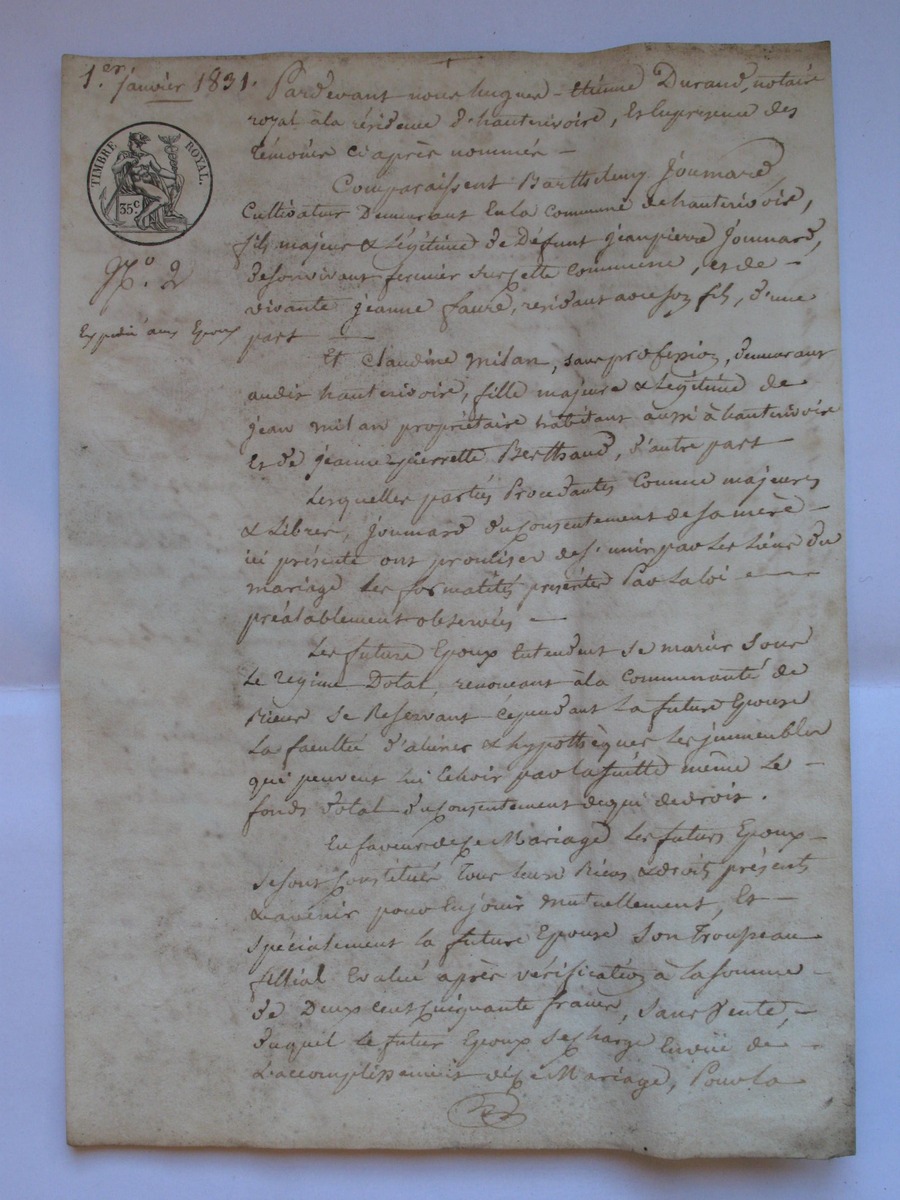 1er. janvier 1831.
TIMBRE ROYAL.
35c
No. 2
Expédié aux Epoux
Pardevant nous hugues-étienne Durand, notaire
royal à la résidence d'hauterivoire, Et en présence des
témoins ci après nommés —
Comparaissent Barthelemy Joumard,
Cultivateur Demeurant En la Commune de hauterivoire,
fils majeur & Légitime de Défunt jeanpierre Joumard,
de son vivant fermier sur cette Commune, et de —
vivante jeanne faure, résidant avec son fils, d'une
part —
Et Claudine Milan, sans profession, demeurant
audit hauterivoire, fille majeure & Légitime de
jean Milan propriétaire habitant aussi à hauterivoire
Et de jeanne pierrette Berthaud, d'autre part —
Lesquelles parties Procédantes Comme majeures
& Libres, Joumard du consentement de sa mère —
ici présente ont promis de s'unir par Les Liens du
mariage Les formalités par La loi —
préalablement observées —
Les future Epoux Entendent se marier sous
Le régime Dotal, renonçant à la Communauté de
Biens se Reservant cependant La future Epouse
La faculté d'aliéner & hypothéquer Les jmmeubles
qui peuvent lui Echoir par la suitte même Le —
fonds dotal du consentement de qui de droit.
En faveur de Ce Mariage Les futurs Epoux —
se sont Constitués Tous leurs Biens & droits présents
& avenir pour En jouir Mutuellement, Et —
spécialement la future Epouse son Trousseau
fillial Evalué après vérification à La somme —
de Deux Cent Cinquante francs, sans Vente, —
duquel Le futur Epoux se Charge de —
L'accomplissement de Ce Mariage, Pour La